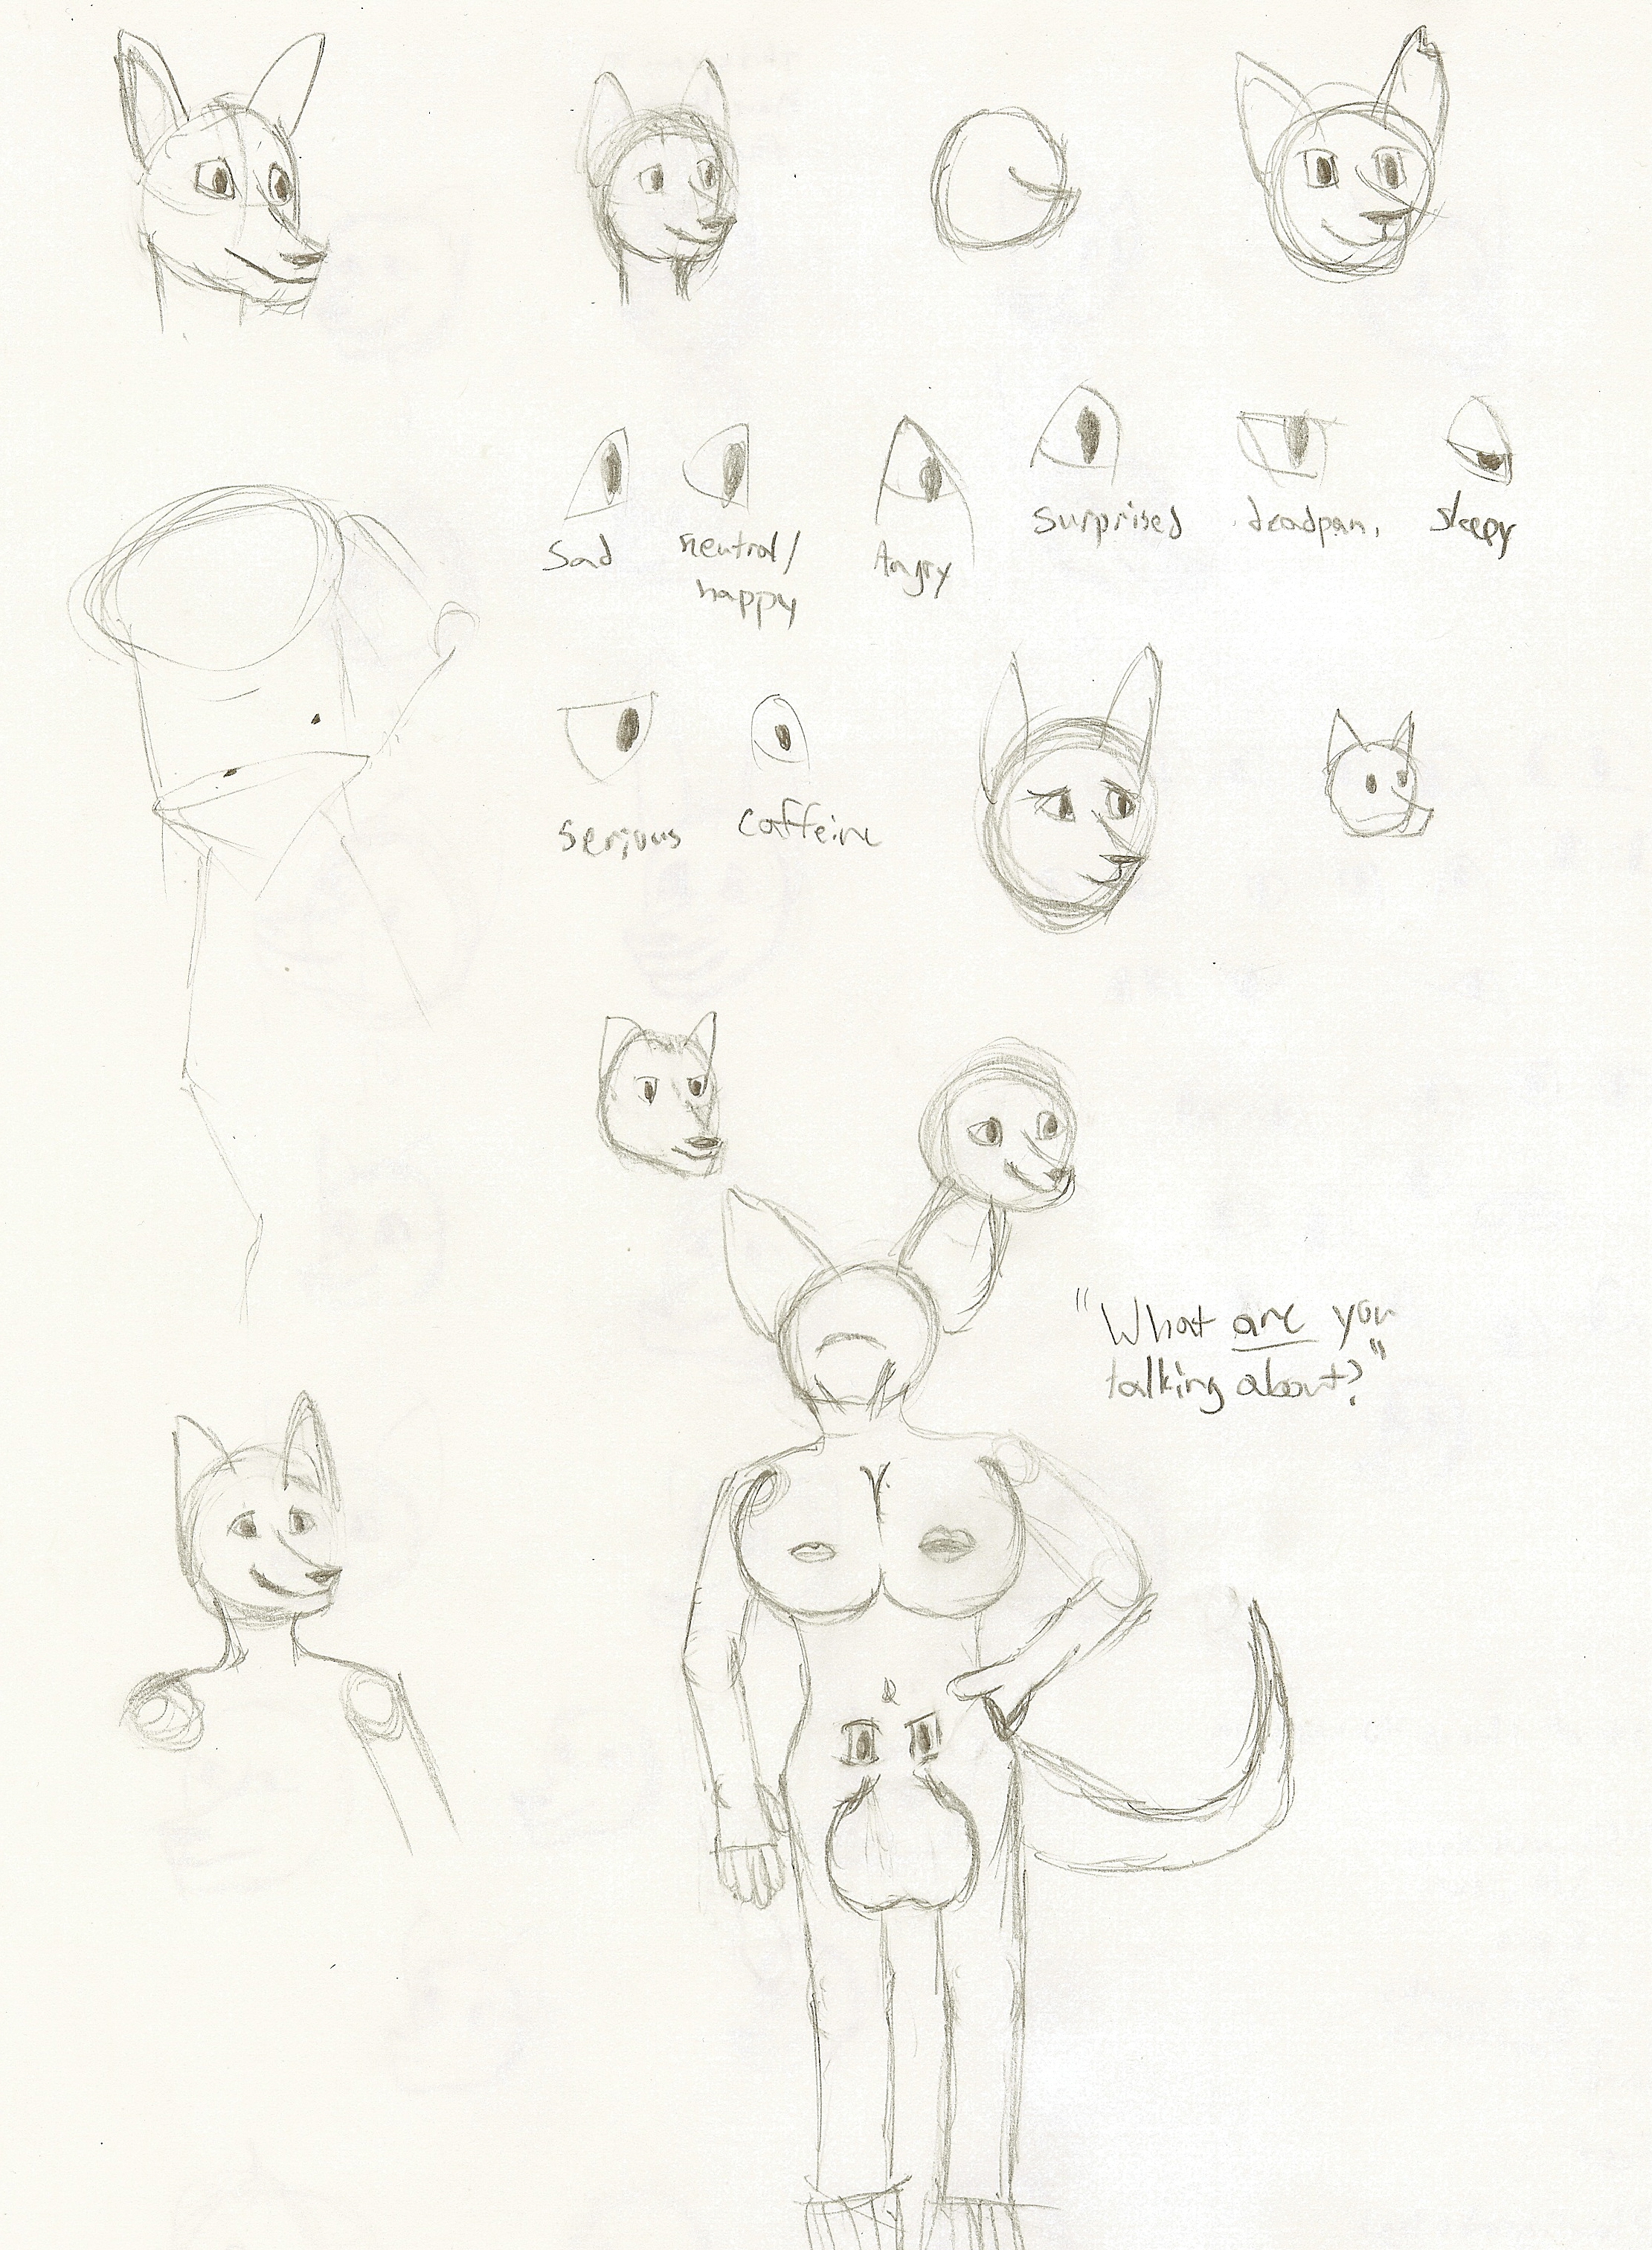 Sad
neutral/
happy
Angry
Surprised
deadpan.
sleepy
Serious
Caffeine
"What are you
talking about?"